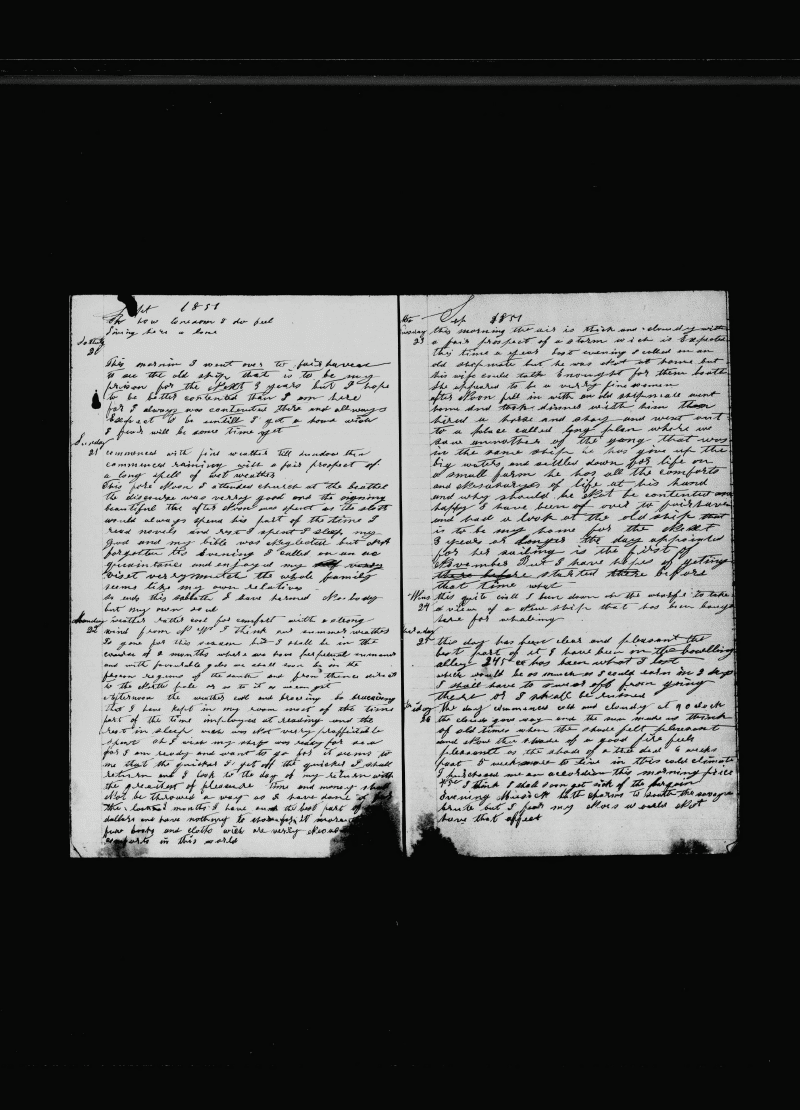 Sept 1851
Oh how lonesom I do feel
Living here a lone
20
This mornin I went over to fairhaven
to see the old ship that is to be my
prison for the Next 3 years but I hope
to be better contented than I am here
for I always was contented there and allways
Expect to be untill I get a home wich
I fear will be some time yet
Sunday
21 commenced with fine weather till sundown then
commenced raining with a fair prospect of
a long spell of wet weather
this fore Noon I attended church at the beathel
the discourse was verry good and the signing
beautiful this after Noon was spent as the sloth
would always spend his part of the time I
read novels and rest I spent I sleep my
God and my bible was Neglected but Not
forgotten this Evening I called on an ac
quaintance and enjoyed my
viset verry mutch the whole family
seems like my own relatives
so ends this sabbath I have harmed No body
but my own soul
Monday weather rather cool for comfort with a strong
22 wind from N W I think our summer weather
is gone for this season but I shall be in the
course of 2 months where we have perpetual summer
and with favorable gales we shall soon be in the
frozen regions of the south and from thence direct
to the North pole or as to it as we can get
afternoon the weather cold and bracing so
that I have kept in my room most of the time
part of the time imployed at reading and the
rest in sleep wich was Not verry proffitable
spent oh I wish my ship was ready for sea
for I am ready and want to go for it seems to
me that the quicker I get off the quicker I shall
return and I look to the day of my return with
the greatest of pleasure time and money shall
Not be throwed a way as I have done for
the last months I have the best part of
dollars and have nothing to show for it
few books and cloths wich are verry
comforts in this world
Sep 1851
this morning the air is thick and cloudy with
23 a fair prospect of a storm wich is Expected
this time a year last evening I called on an
old shopmate but he was Not at home but
his wife could talk Enought for them both
she appeared to be a verry fine women
after Noon fell in with an old shipmate went
home and took dinner with him then
hired a horse and shay and went out
to a place called long plan where we
saw annother of the gang that was
in the same ship he has give up the
big waters and settled down for life on
a small farm he has all the comforts
and Nesacarys of life at his hand
and why should he Not be contented and
happy I have been of over to fairhaven
and had a look at the old ship that
is to be my home for the Next
3 years or longer the day appointed
for her sailing is the first of
November But I have hopes of geting
there before started there before
that time
this quite civil I been down on the warfe to take
24 a view of a New ship that has been bought
here for whaling
25 this day has been clear and pleasant the
best part of it I have been in the bowlling
alley 24 has been what I lost
which would be as much as I could earn in 2 days
I shall have to swear off from going
there or I shall be ruined
the day commenced cold and cloudy at 9 o clock
26 the clouds gave way and the sun made us think
of old times when the shade felt pleasant
and Now the shade of a good fire feels
pleasante as the shade of a tree did 6 weeks
past to live in this cold climate
I purchased me an accordion this morning price
I think I shall soon get sick of the bargain
Evening Musick hath charms to sooth the savage
brute but I fear my Nois would Not
have that effect